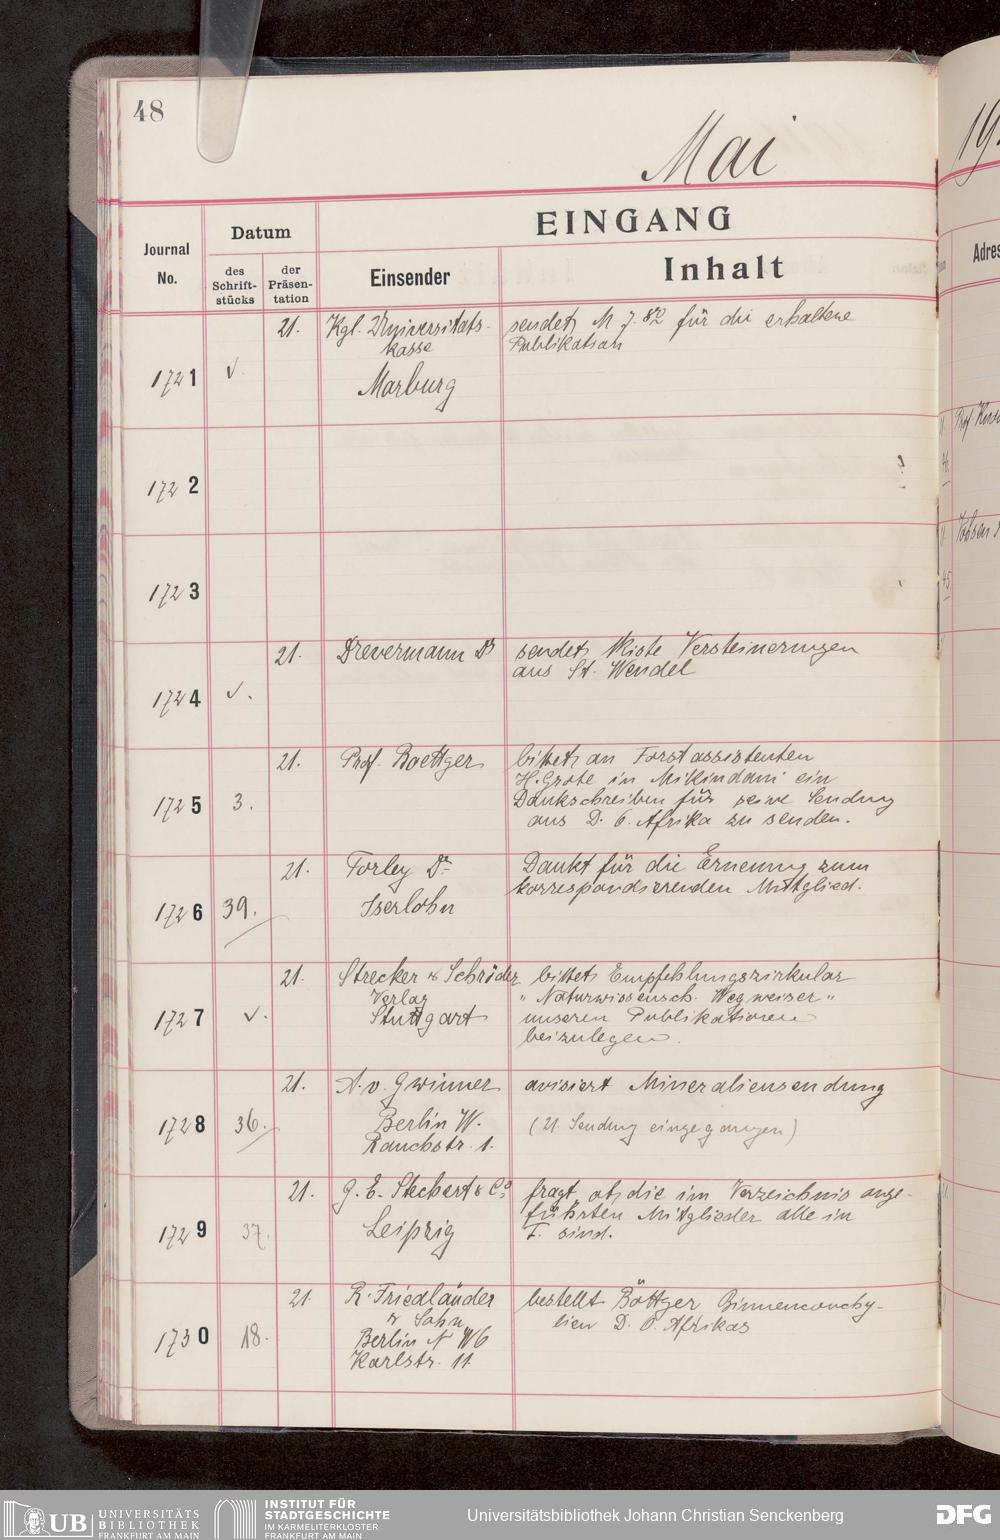 48
Mai
19
EINGANG
Journal
No.
Datum
des
Schrift-
stücks
der
Präsen-
tation
Einsender
Inhalt
Adres
1721
√.
21.
Kgl. Universitäts-
kasse
Marburg
sendet M 7.82 für die erhaltene
Publikation
1722
1723
1724
√.
21.
Drevermann Dr
sendet 1 Kiste Versteinerungen
aus St. Wendel
1725
3.
21.
Prof. Boettger
bittet, an Forstassistenten
H. Grote in Mikindani ein
Dankschreiben für seine Sendung
aus D. O. Afrika zu senden.
1726
39.
21.
Torley Dr.
Iserlohn
Dankt für die Ernennung zum
korrespondierenden Mitglied.
1727
√.
21.
Strecker & Schröder
Verlag
Stuttgart
bittet Empfehlungszirkular
" Naturwissensch. Wegweiser "
unseren Publikationen
beizulegen.
1728
36.
21.
A. v. Gwinner
Berlin W.
Rauchstr. 1.
avisiert Mineraliensendung
(21 Sendung eingegangen)
1729
37.
21.
G. E. Stechert & Co.
Leipzig
fragt, ob die im Verzeichnis ange-
führten Mitglieder alle in
F. sind.
1730
18.
21.
R. Friedländer
& Sohn
Berlin N W 6
Karlstr. 11
bestellt Böttger Binnenconchy-
lien D. O. Afrikas
UB
UNIVERSITÄTS
BIBLIOTHEK
FRANKFURT AM MAIN
INSTITUT FÜR
STADTGESCHICHTE
IM KARMELITERKLOSTER
FRANKFURT AM MAIN
Universitätsbibliothek Johann Christian Senckenberg
DFG